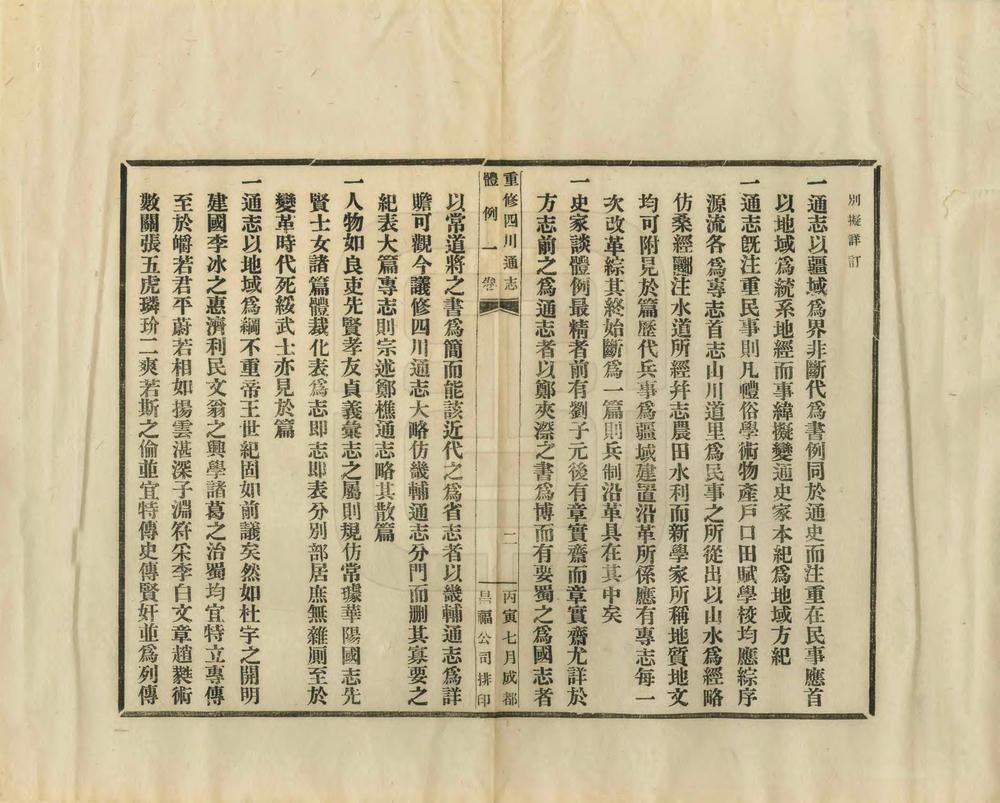 別擬詳訂
一通志以疆域爲界非斷代爲書例同於通史而注重在民事應首
以地域爲統系地經而事緯擬變通史家本紀爲地域方紀
一通志旣注重民事則凡禮俗學術物產戶口田賦學校均應綜序
源流各爲專志首志山川道里爲民事之所從出以山水爲經略
仿桑經酈注水道所經幷志農田水利而新學家所稱地質地文
均可附見於篇歷代兵事爲疆域建置沿革所係應有專志每一
次改革綜其終始斷爲一篇則兵制沿革具在其中矣
一史家談體例最精者前有劉子元後有章實齋而章實齋尤詳於
方志前之爲通志者以鄭夾漈之書爲博而有要蜀之爲國志者
重修四川通志
體例一卷
二
丙寅七月成都
昌福公司排印
以常道將之書爲簡而能該近代之爲省志者以畿輔通志爲詳
贍可觀今議修四川通志大略仿畿輔通志分門而刪其寡要之
紀表大篇專志則宗述鄭樵通志略其散篇
一人物如良吏先賢孝友貞義彙志之屬則規仿常璩華陽國志先
賢士女諸篇體裁化表爲志即志即表分別部居庶無雜厠至於
變革時代死綏武士亦見於篇
一通志以地域爲綱不重帝王世紀固如前議矣然如杜宇之開明
建國李冰之惠濟利民文翁之興學諸葛之治蜀均宜特立專傳
至於嶓若君平蔚若相如揚雲湛深子淵符采李白文章趙㽔術
數關張五虎璘玠二爽若斯之倫並宜特傳史傳賢奸並爲列傳